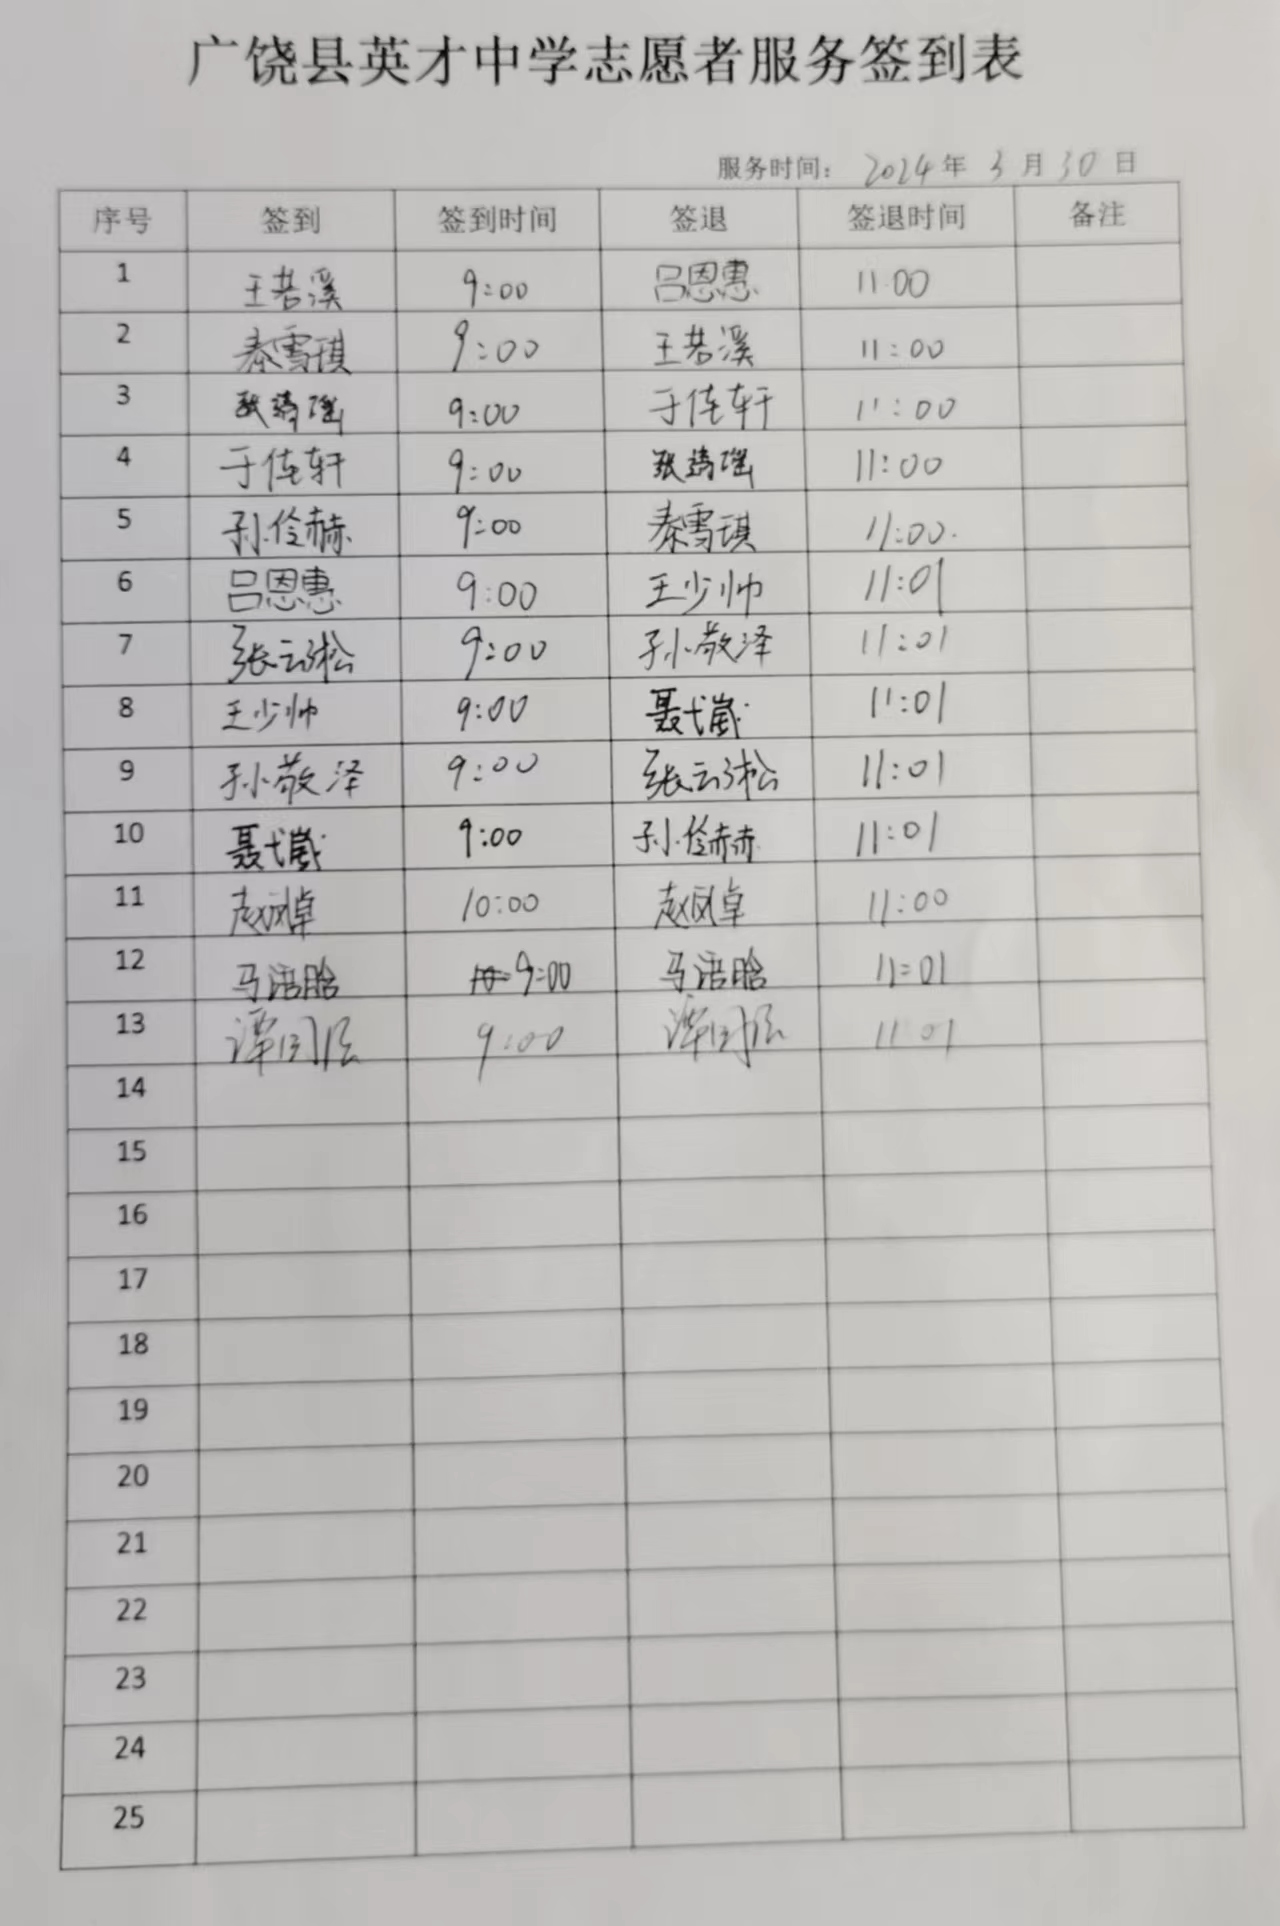 广饶县英才中学志愿者服务签到表
服务时间: 2024年 3月30日
序号 签到 签到时间 签退 签退时间 备注
1 王若溪 9:00 吕恩惠 11:00
2 秦雪琪 9:00 王若溪 11:00
3 张靖瑶 9:00 于佳轩 11:00
4 于佳轩 9:00 张靖瑶 11:00
5 孙伶赫 9:00 秦雪琪 11:00.
6 吕恩惠 9:00 王少帅 11:01
7 张云淞 9:00 孙敬泽 11:01
8 王少帅 9:00 聂弋崴 11:01
9 孙敬泽 9:00 张云淞 11:01
10 聂弋崴 9:00 孙伶赫 11:01
11 赵凤卓 10:00 赵凤卓 11:00
12 马语晗 9:00 马语晗 11:01
13 谭 9:00 谭 11:01
14
15
16
17
18
19
20
21
22
23
24
25